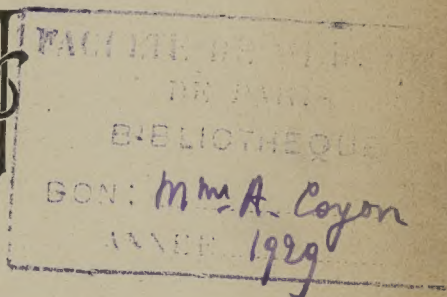 FACULTE DE MEDECINE
DE PARIS
BIBLIOTHEQUE
DON: Mme A. Coyon
ANNEE 1929